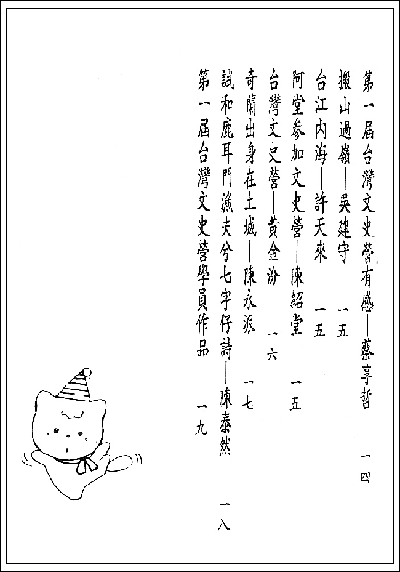 第一屆台灣文史營有感—蔡享哲 一四
搬山過嶺—吳建守 一五
台江內海—許天來 一五
阿堂參加文史營—陳紹堂 一五
台灣文史營—黃金汾 一六
奇蘭出身在土城—陳永派 一七
試和鹿耳門漁夫兮七字仔詩—陳泰然 一八
第一屆台灣文史營學員作品 一九